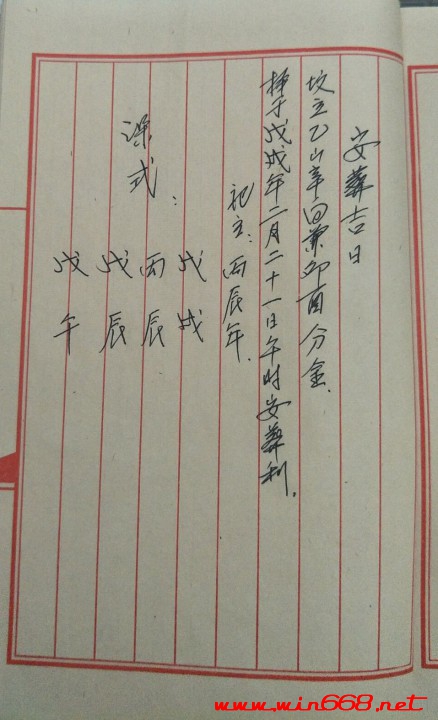 安葬吉日
坟立乙山辛向兼卯酉分金.
择于戊戌年二月二十一日午时安葬利.
祀主:丙辰年.
课式:
戊戌
丙辰
戊辰
戊午
www.win668.net